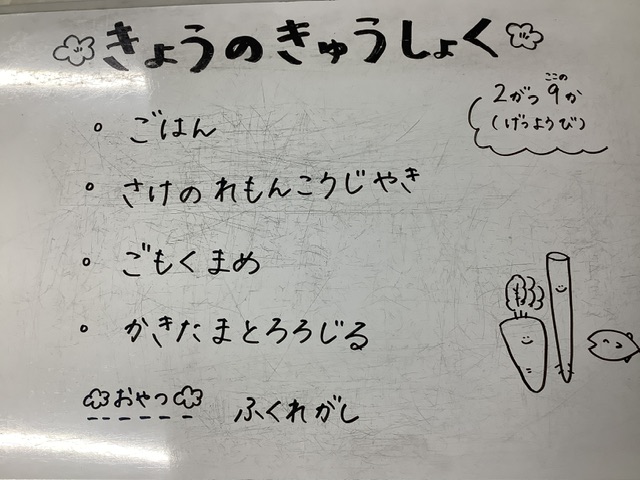 きょうのきゅうしょく
2がつ9(ここの)か
(げつようび)
。ごはん
。さけのれもんこうじやき
。ごもくまめ
。かきたまとろろじる
おやつ ふくれがし